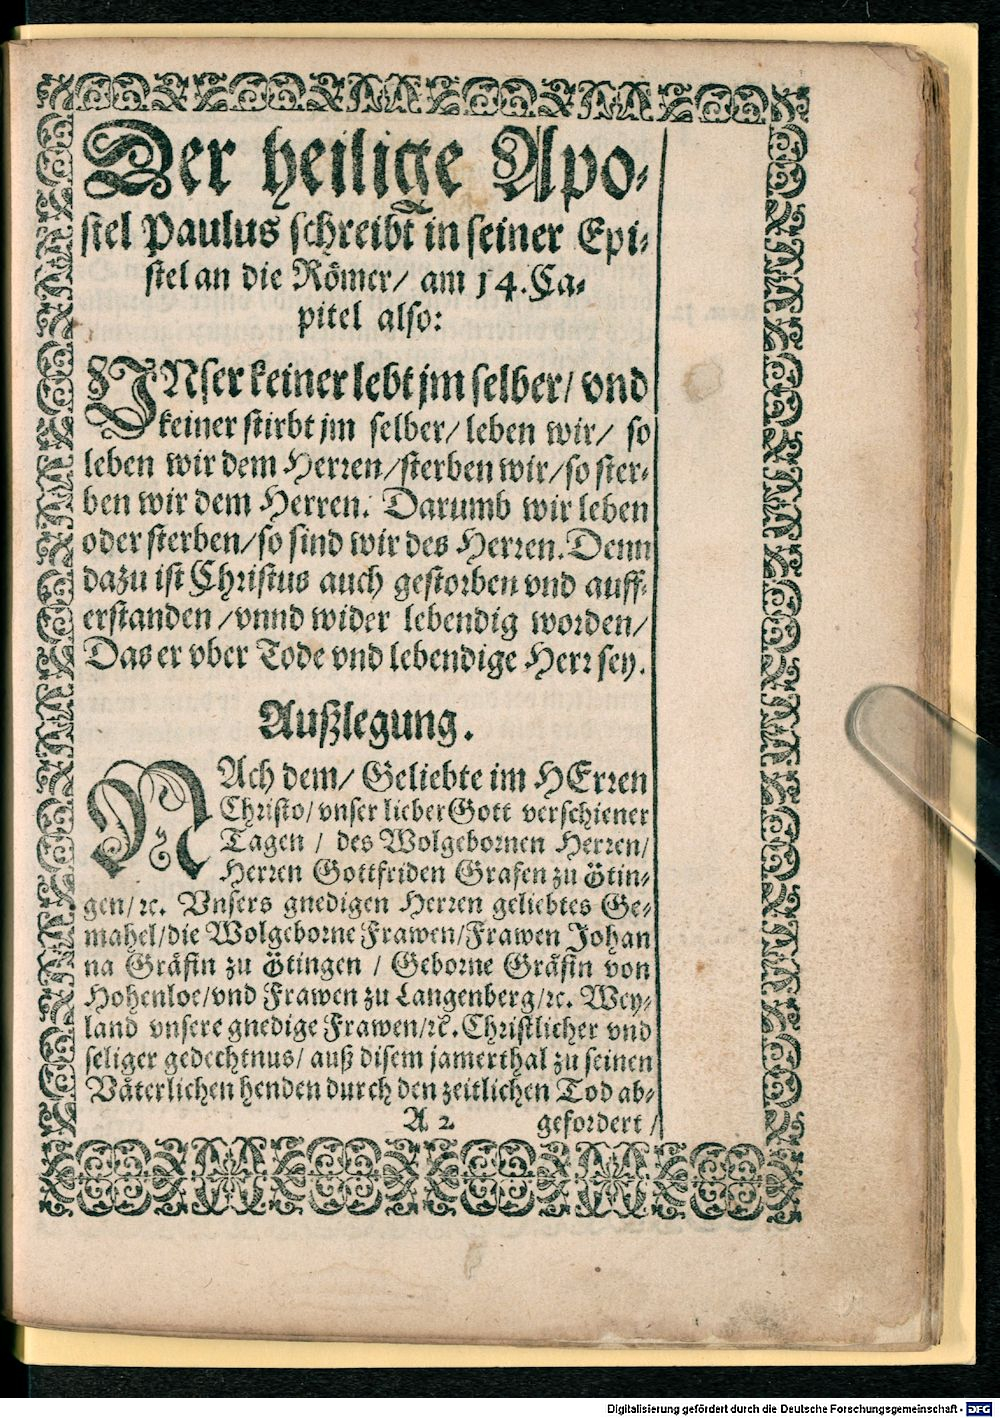 Der heilige Apo-
stel Paulus schreibt in seiner Epi-
stel an die Römer/ am 14. Ca-
pitel also:
UNser keiner lebt jm selber/ vnd
keiner stirbt jm selber/ leben wir/ so
leben wir dem Herren/sterben wir/so ster-
ben wir dem Herren. Darumb wir leben
oder sterben/so sind wir des Herren. Denn
dazu ist Christus auch gestorben vnd auff-
erstanden/vnnd wider lebendig worden/
Das er vber Tode vnd lebendige Herr sey.
Außlegung.
NAch dem/ Geliebte im HErren
Christo/ vnser lieber Gott verschiener
Tagen/ des Wolgebornen Herren/
Herren Gottfriden Grafen zu Ötin-
gen/ ꝛc. Vnsers gnedigen Herren geliebtes Ge-
mahel/die Wolgeborne Frawen/Frawen Johan
na Gräfin zu Ötingen/ Geborne Gräfin von
Hohenloe/vnd Frawen zu Langenberg/ꝛc. Wey-
land vnsere gnedige Frawen/ꝛc. Christlicher vnd
seliger gedechtnus/ auß disem jamerthal zu seinen
Väterlichen henden durch den zeitlichen Tod ab-
A 2 gefordert/
Digitalisierung gefördert durch die Deutsche Forschungsgemeinschaft - DFG